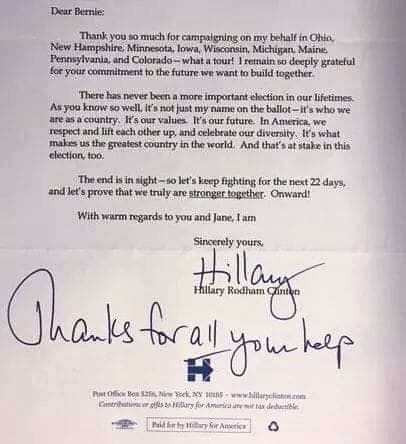 Dear Bernie:
Thank you so much for campaigning on my behalf in Ohio,
New Hampshire, Minnesota, Iowa, Wisconsin, Michigan, Maine,
Pennsylvania, and Colorado—what a tour! I remain so deeply grateful
for your commitment to the future we want to build together.
There has never been a more important election in our lifetimes.
As you know so well, it's not just my name on the ballot—it's who we
are as a country. It's our values. It's our future. In America, we
respect and lift each other up, and celebrate our diversity. It's what
makes us the greatest country in the world. And that's at stake in this
election, too.
The end is in sight—so let's keep fighting for the next 22 days,
and let's prove that we truly are stronger together. Onward!
With warm regards to you and Jane, I am
Sincerely yours,
Hillary
Hillary Rodham Clinton
Thanks for all your help
H
Post Office Box 5256, New York, NY 10185 - www.hillaryclinton.com
Contributions or gifts to Hillary for America are not tax deductible.
Paid for by Hillary for America